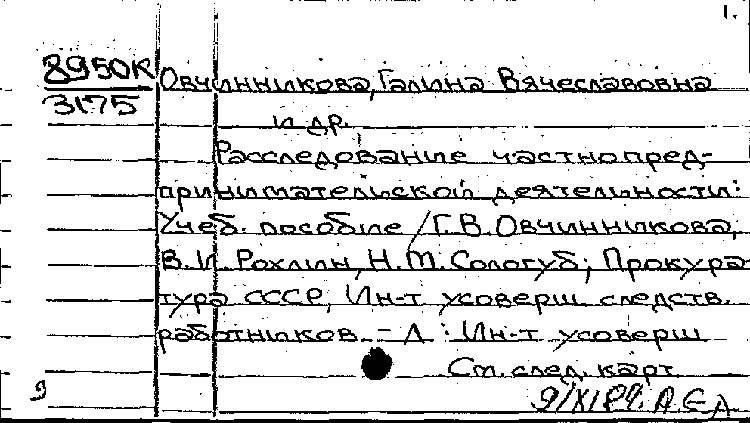 1.
8950К Овчинникова, Галина Вячеславовна
3175
и др.
Расследование частнопред-
принимательской деятельности:
Учеб. пособие / Г.В. Овчинникова,
В.И. Рохлин, Н.М. Сологуб; Прокура-
тура СССР, Ин-т усоверш. следств.
работников. - Л : Ин-т усоверш
См. след. карт.
9 9/XI 84. А Е А